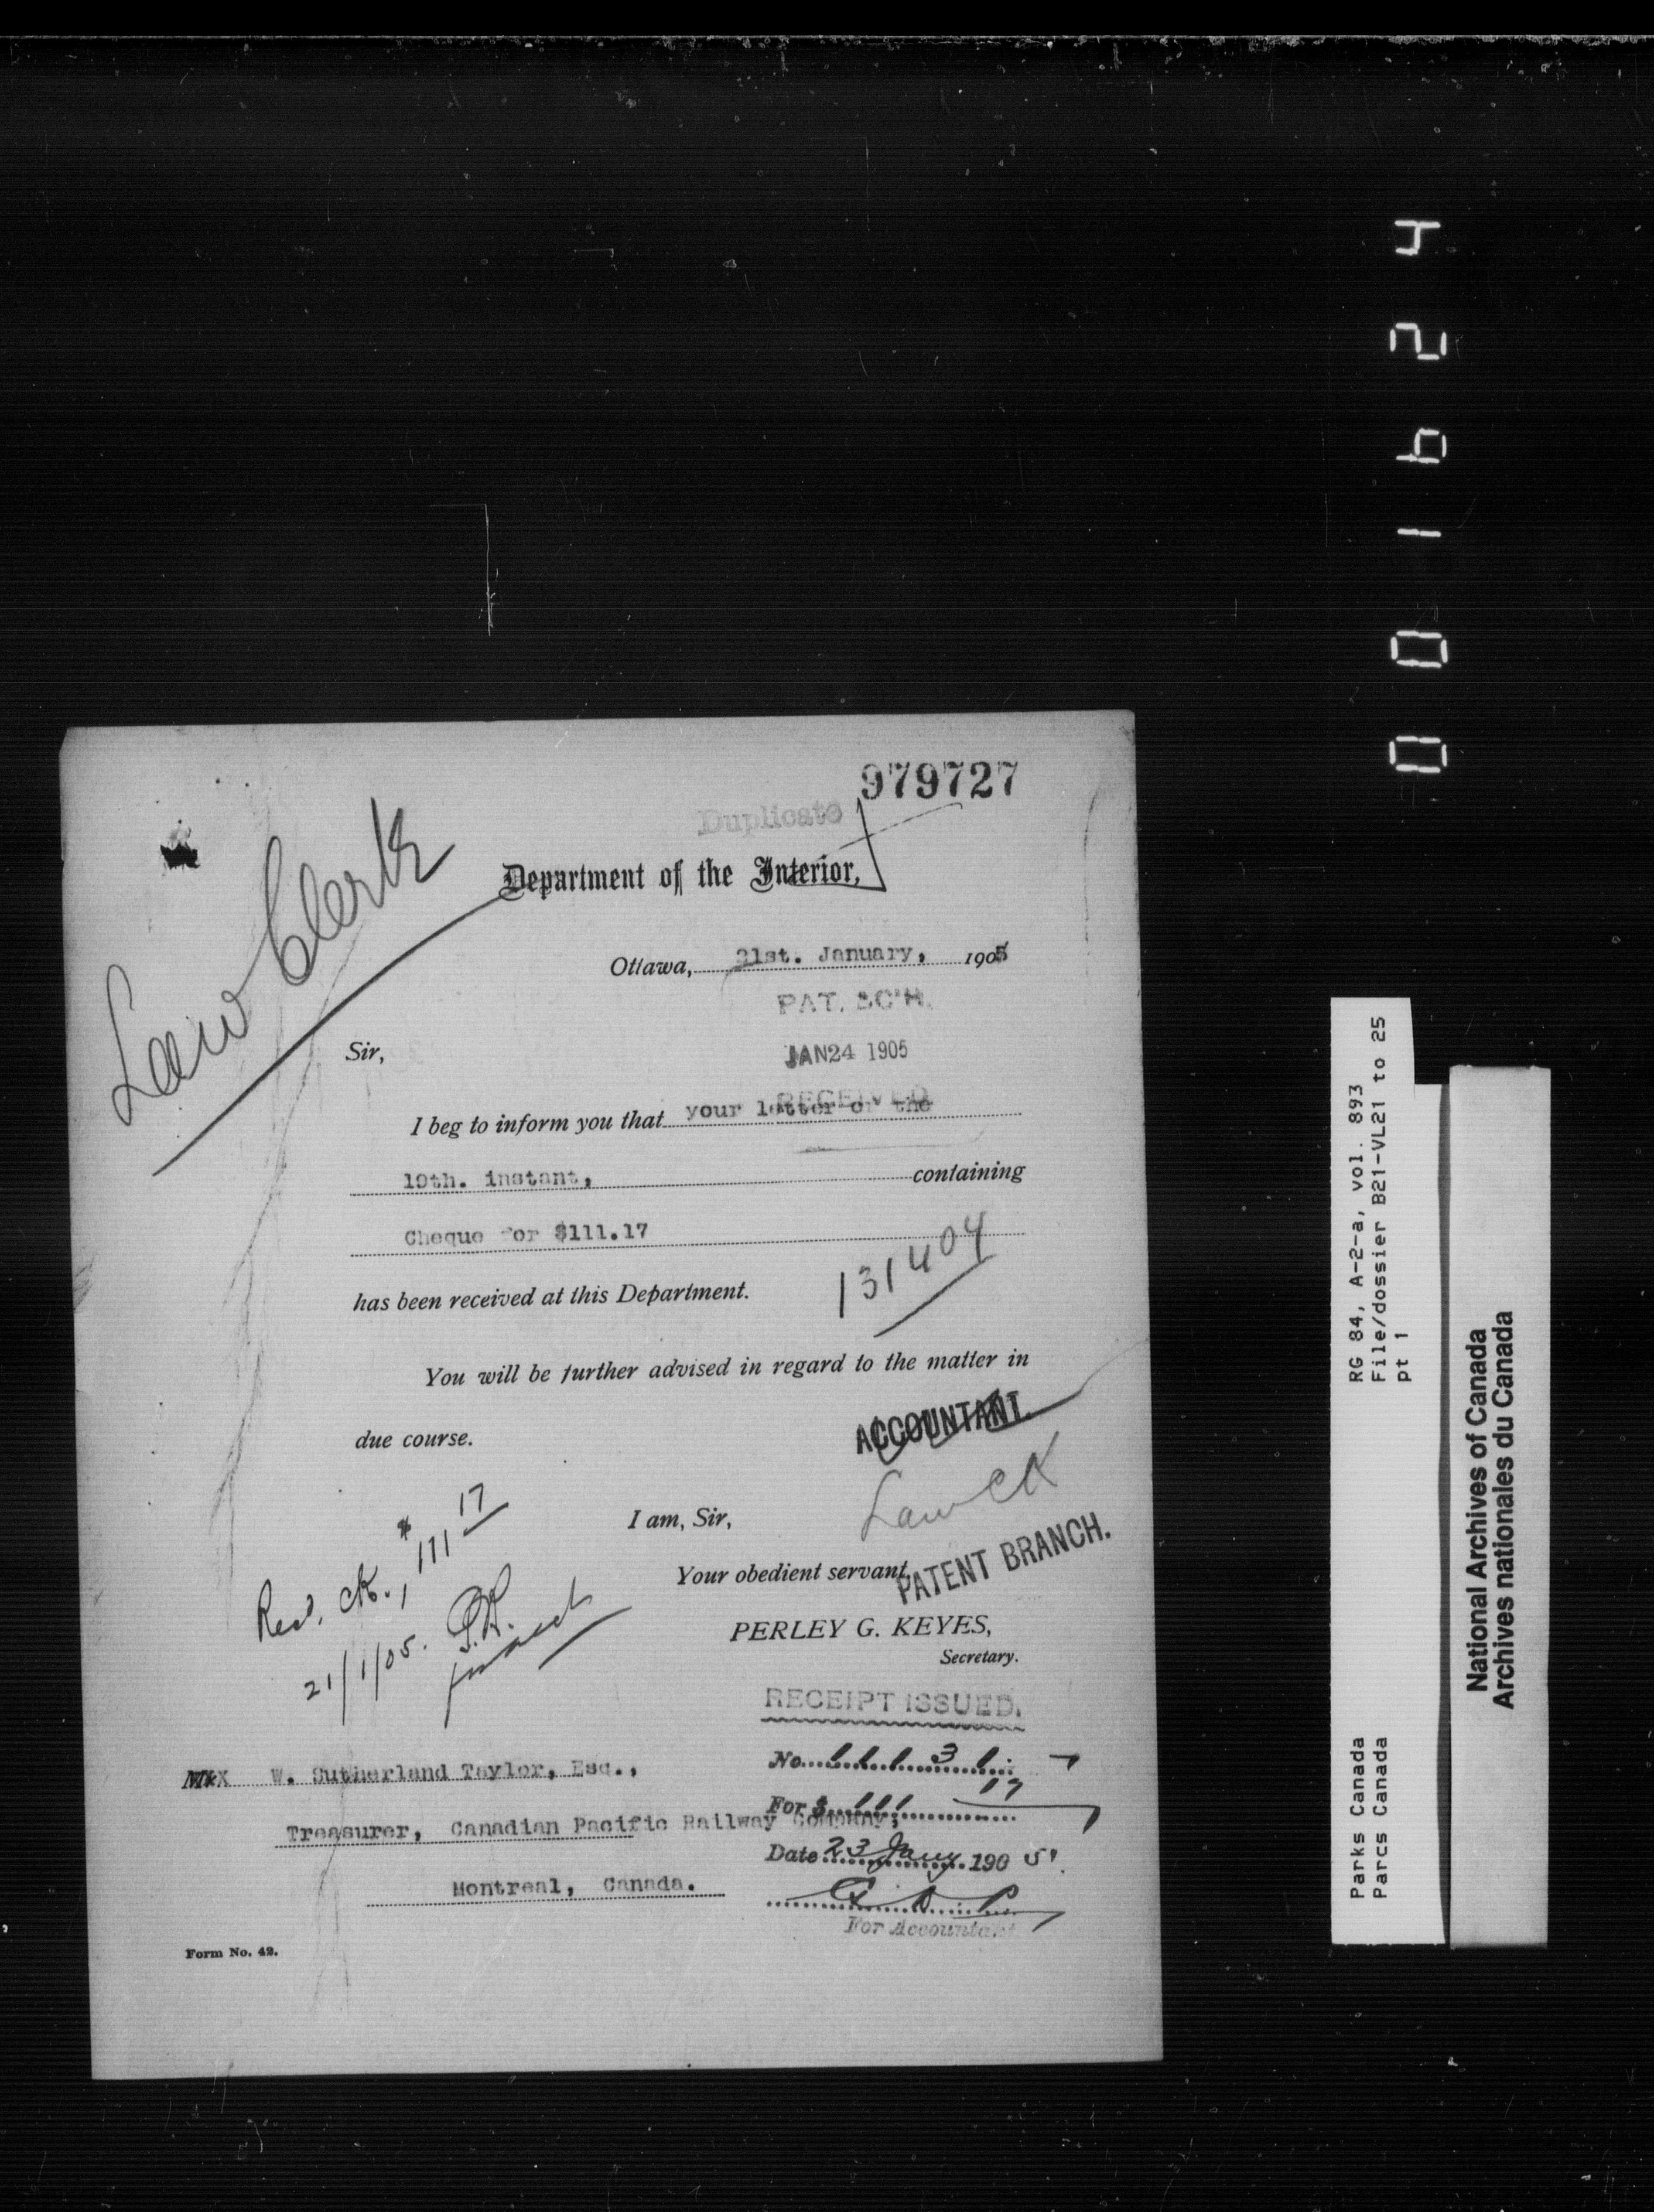 979727
Duplicate
Department of the Interior,
Law Clerk
Ottawa, 21st. January, 1905
PAT. BC'H.
Sir,
JAN 24 1905
RECEIVED
I beg to inform you that your letter of the
19th. instant, containing
Cheque for $111.17
131404
has been received at this Department.
You will be further advised in regard to the matter in
due course.
ACCOUNTANT.
Law Ck
I am, Sir,
Your obedient servant,
PATENT BRANCH.
PERLEY G. KEYES,
Secretary.
Recd. ck., $111 17
21/1/05.
RECEIPT ISSUED.
No. 11131
For $ 111 17
Date 23 Jany 1905.
For Accountant
W. Sutherland Taylor, Esq.,
Treasurer, Canadian Pacific Railway Company,
Montreal, Canada.
Form No. 42.
RG 84, A-2-a, vol. 893
File/dossier B21-VL21 to 25
pt 1
Parks Canada
Parcs Canada
National Archives of Canada
Archives nationales du Canada